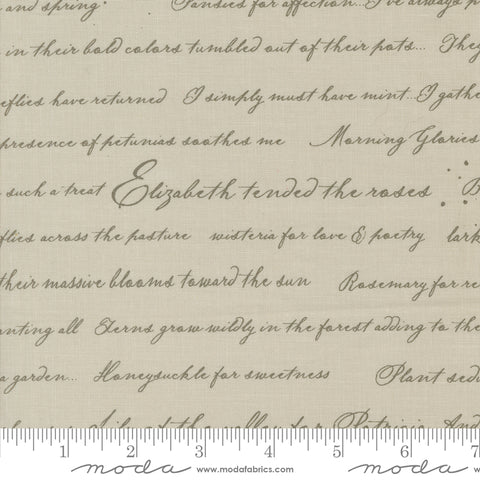 and spring. Pansies for affection... I've always
in their bold colors tumbled out of their pots... They
eflies have returned I simply must have mint... I gathe
presence of petunias soothes me Morning Glories
such a treat Elizabeth tended the roses B
flies across the pasture wisteria for love & poetry lark
their massive blooms toward the sun Rosemary for re
anting all Ferns grow wildly in the forest adding to the
a garden... Honeysuckle for sweetness Plant sedu
of the valley for Patricia And
1 2 3 4 5 6 7
moda www.modafabrics.com moda